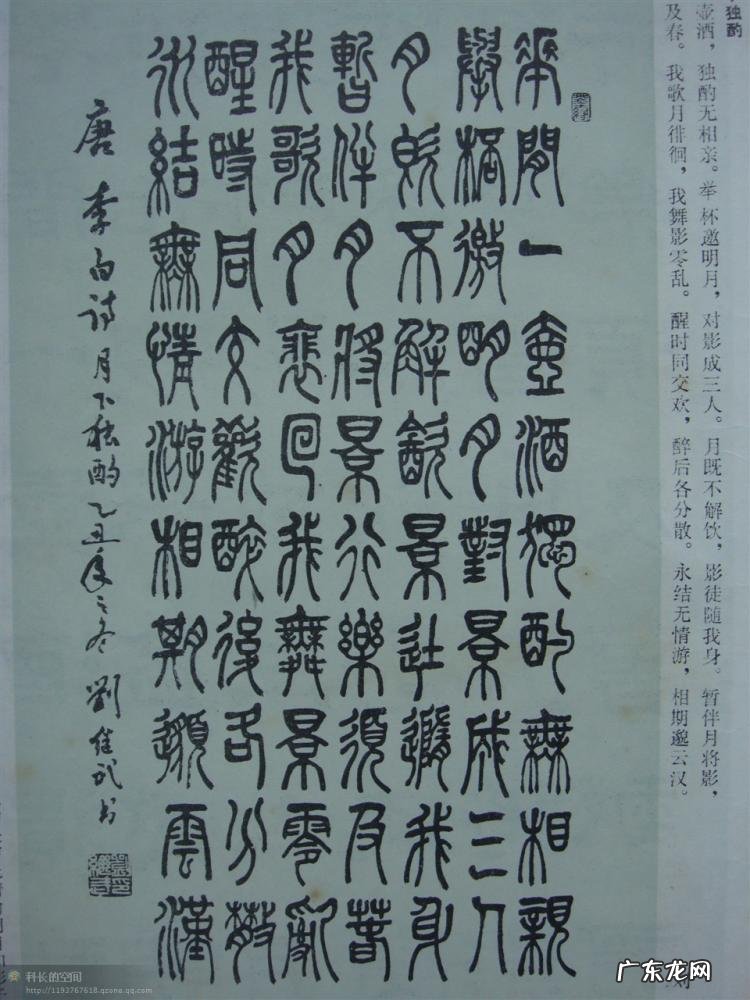 独酌
壶酒，独酌无相亲。举杯邀明月，对影成三人。月既不解饮，影徒随我身。暂伴月将影，
及春。我歌月徘徊，我舞影零乱。醒时同交欢，醉后各分散。永结无情游，相期邈云汉。
華間一壺酒獨酌無相親
舉桮邀明月對景成三人
月既不解飲景徒隨我身
暫伴月將景行樂須及春
我歌月裴回我舞景零亂
醒時同交歡醉後各分散
永結無情游相期邈雲漢
唐李白诗月下独酌乙丑年之冬劉书
科长的空间
http://1193767618.qzone.qq.com
广东龙网